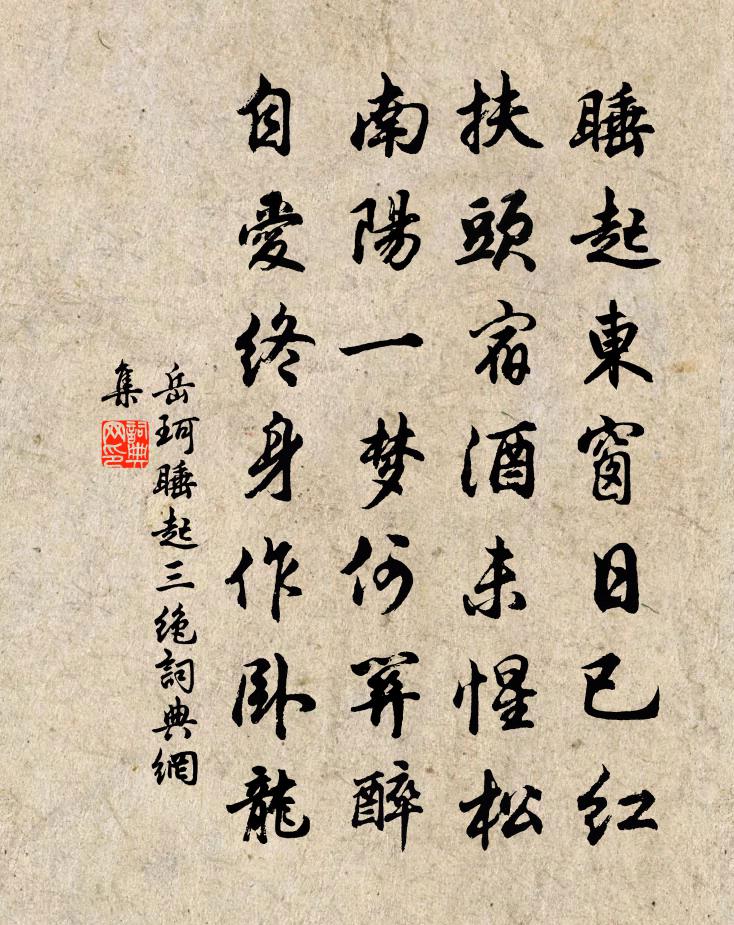 睡起東窗日已紅
扶頭宿酒未惺松
南陽一梦何關醉
自愛終身作卧龍
岳珂睡起三絶詞典網
集
詞典网印